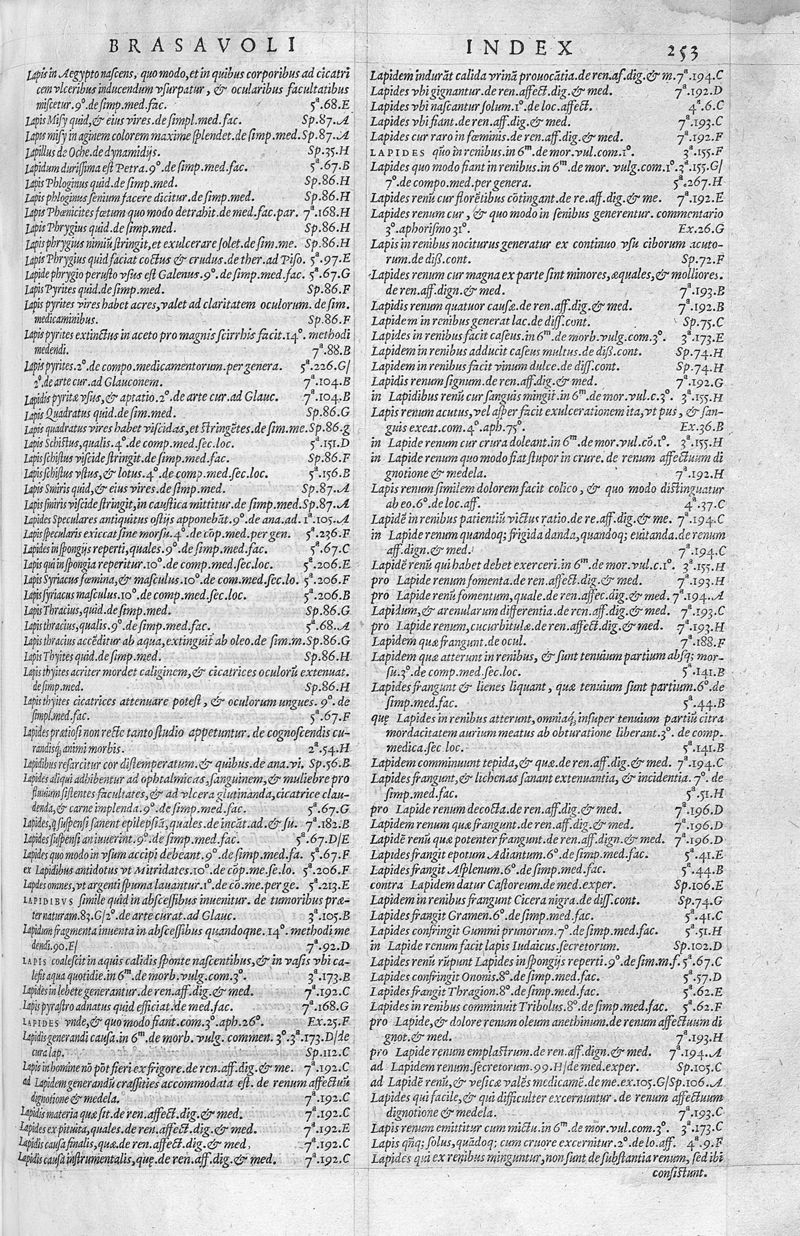 BRASAVOLI INDEX 253
Lapis in Aegypto nascens, quo modo, et in quibus corporibus ad cicatri
cem vlceribus inducendum vsurpatur, & ocularibus facultatibus
miscetur. 9°. de simp. med. fac. 5ª.68.E
Lapis Misy quid, & eius vires. de simpl. med. fac. Sp.87.A
Lapis misy in aginem colorem maxime splendet. de simp. med. Sp.87.A
Lapillus de Oche. de dynamidijs. Sp.35.H
Lapidum durissima est Petra. 9°. de simp. med. fac. 5ª.67.B
Lapis Phloginus quid. de simp. med. Sp.86.H
Lapis phloginus senium facere dicitur. de simp. med. Sp.86.H
Lapis Phœnicites fœtum quo modo detrahit. de med. fac. par. 7ª.168.H
Lapis Phrygius quid. de simp. med. Sp.86.H
Lapis phrygius nimiũ stringit, et exulcerare solet. de sim. me. Sp.86.H
Lapis Phrygius quid faciat coctus & crudus. de ther. ad Piso. 5ª.97.E
Lapide phrygio perusto vsus est Galenus. 9°. de simp. med. fac. 5ª.67.G
Lapis Pyrites quid. de simp. med. Sp.86.F
Lapis pyrites vires habet acres, valet ad claritatem oculorum. de sim.
medicaminibus. Sp.86.F
Lapis pyrites extinctus in aceto pro magnis scirrhis facit. 14°. methodi
medendi. 7ª.88.B
Lapis pyrites. 2°. de compo. medicamentorum. per genera. 5ª.226.G/
2°. de arte cur. ad Glauconem. 7ª.104.B
Lapidis pyritæ vsus, & aptatio. 2°. de arte cur. ad Glauc. 7ª.104.B
Lapis Quadratus quid. de sim. med. Sp.86.G
Lapis quadratus vires habet viscidas, et stringẽtes. de sim. me. Sp.86.g
Lapis Schistus, qualis. 4°. de comp. med. sec. loc. 5ª.151.D
Lapis schistus viscide stringit. de simp. med. fac. Sp.86.F
Lapis schistus vstus, & lotus. 4°. de comp. med. sec. loc. 5ª.156.B
Lapis Smiris quid, & eius vires. de simp. med. Sp.87.A
Lapis smiris viscide stringit, in caustica mittitur. de simp. med. Sp.87.A
Lapides Speculares antiquitus ostijs apponebãt. 9°. de ana. ad. 1ª.105.A
Lapis specularis exiccat sine morsu. 4°. de cõp. med. per gen. 5ª.236.F
Lapides in spongijs reperti, quales. 9°. de simp. med. fac. 5ª.67.C
Lapis qui in spongia reperitur. 10°. de comp. med. sec. loc. 5ª.206.E
Lapis Syriacus fœmina, & masculus. 10°. de com. med. sec. lo. 5ª.206.F
Lapis syriacus masculus. 10°. de comp. med. sec. loc. 5ª.206.B
Lapis Thracius, quid. de simp. med. Sp.86.G
Lapis thracius, qualis. 9°. de simp. med. fac. 5ª.68.A
Lapis thracius accẽditur ab aqua, extinguiť ab oleo. de sim. m. Sp.86.G
Lapis Thyites quid. de simp. med. Sp.86.H
Lapis thyites acriter mordet caliginem, & cicatrices oculorũ extenuat.
de simp. med. Sp.86.H
Lapis thyites cicatrices attenuare potest, & oculorum ungues. 9°. de
simpl. med. fac. 5ª.67.F
Lapides pratiosi non recte tanto studio appetuntur. de cognoscendis cu-
randisq; animi morbis. 2ª.54.H
Lapidibus resarcitur cor distemperatum. & quibus. de ana. vi. Sp.56.B
Lapides aliqui adhibentur ad ophtalmicas, sanguinem, & muliebre pro
fluuium sistentes facultates, & ad vlcera glutinanda, cicatrice clau-
denda, & carne implenda. 9°. de simp. med. fac. 5ª.67.G
Lapides, q suspensi sanent epilepsiã, quales. de incãt. ad. & su. 7ª.182.B
Lapides suspensi an iuuerint. 9°. de simp. med. fac. 5ª.67.D/E
Lapides quo modo in vsum accipi debeant. 9°. de simp. med. fa. 5ª.67.F
ex Lapidibus antidotus vt Mitridates. 10°. de cõp. me. se. lo. 5ª.206.F
Lapides omnes, vt argenti spuma lauantur. 1°. de cõ. me. per ge. 5ª.213.E
LAPIDIBVS simile quid in abscessibus inuenitur. de tumoribus præ-
ter naturam. 83.G/2°. de arte curat. ad Glauc. 3ª.105.B
Lapidum fragmenta inuenta in abscessibus quandoque. 14°. methodi me
dendi. 90.F/ 7ª.92.D
LAPIS coalescit in aquis calidis sponte nascentibus, & in vasis vbi ca-
lesit aqua quotidie. in 6ᵐ. de morb. vulg. com. 3°. 3ª.173.B
Lapides in lebete generantur. de ren. aff. dig. & med. 7ª.192.C
Lapis pyrastro adnatus quid efficiat. de med. fac. 7ª.168.G
LAPIDES vnde, & quo modo fiant. com. 3°. aph. 26°. Ex.25.F
Lapidis generandi causa. in 6ᵐ. de morb. vulg. commen. 3°. 3ª.173.D/de
cura lap. Sp.112.C
Lapis in homine nõ põt fieri ex frigore. de ren. aff. dig. & me. 7ª.192.C
ad Lapidem generandũ crassities accommodata est. de renum affectuũ
dignotione & medela. 7ª.192.C
Lapidis materia quæ sit. de ren. affect. dig. & med. 7ª.192.C
Lapides ex pituita, quales. de ren. aff. dig. & med. 7ª.192.E
Lapidis causa finalis, quæ. de ren. aff. dig. & med. 7ª.192.C
Lapidis causa instrumentalis, quę. de ren. aff. dig. & med. 7ª.192.C
Lapidem indurãt calida vrinã prouocãtia. de ren. af. dig. & m. 7ª.194.C
Lapides vbi gignantur. de ren. affect. dig. & med. 7ª.192.D
Lapides vbi nascantur solum. 1°. de loc. affect. 4ª.6.C
Lapides vbi fiant. de ren. aff. dig. & med. 7ª.193.C
Lapides cur raro in fœminis. de ren. aff. dig. & med. 7ª.192.F
LAPIDES quo in renibus. in 6ᵐ. de mor. vul. com. 1°. 3ª.155.F
Lapides quo modo fiant in renibus. in 6ᵐ. de mor. vulg. com. 1°. 3ª.155.G/
7°. de compo. med. per genera. 5ª.267.H
Lapides renũ cur florẽtibus cõtingant. de re. aff. dig. & me. 7ª.192.E
Lapides renum cur, & quo modo in senibus generentur. commentario
3°. aphorismo 31°. Ex.26.G
Lapis in renibus nociturus generatur ex continuo vsu ciborum acuto-
rum. de diss. cont. Sp.72.F
Lapides renum cur magna ex parte sint minores, æquales, & molliores.
de ren. aff. dign. & med. 7ª.193.B
Lapidis renum quatuor causæ. de ren. aff. dig. & med. 7ª.192.B
Lapidem in renibus generat lac. de diss. cont. Sp.75.C
Lapides in renibus facit caseus. in 6ᵐ. de morb. vulg. com. 3°. 3ª.173.E
Lapidem in renibus adducit caseus multus. de diss. cont. Sp.74.H
Lapidem in renibus facit vinum dulce. de diss. cont. Sp.74.H
Lapidis renum signum. de ren. aff. dig. & med. 7ª.192.G
in Lapidibus renũ cur sanguis mingit. in 6ᵐ. de mor. vul. c. 3°. 3ª.155.H
Lapis renum acutus, vel asper facit exulcerationem ita, vt pus, & san-
guis exeat. com. 4°. aph. 75°. Ex.36.B
in Lapide renum cur crura doleant. in 6ᵐ. de mor. vul. cõ. 1°. 3ª.155.H
in Lapide renum quo modo fiat stupor in crure. de renum affectuum di
gnotione & medela. 7ª.192.H
Lapis renum similem dolorem facit colico, & quo modo distinguatur
ab eo. 6°. de loc. aff. 4ª.37.C
Lapidẽ in renibus patientiũ victus ratio. de re. aff. dig. & me. 7ª.194.C
in Lapide renum quandoq; frigida danda, quandoq; euitanda. de renum
aff. dign. & med. 7ª.194.C
Lapidẽ renũ qui habet debet exerceri. in 6ᵐ. de mor. vul. c. 1°. 3ª.155.H
pro Lapide renum fomenta. de ren. affect. dig. & med. 7ª.193.H
pro Lapide renũ fomentum, quale. de ren. affec. dig. & med. 7ª.194.A
Lapidum, & arenularum differentia. de ren. aff. dig. & med. 7ª.193.C
pro Lapide renum, cucurbitulæ. de ren. affect. dig. & med. 7ª.193.H
Lapidem quæ frangunt. de ocul. 7ª.188.F
Lapidem quæ atterunt in renibus, & sunt tenuium partium absq; mor-
su. 3°. de comp. med. sec. loc. 5ª.141.B
Lapides frangunt & lienes liquant, quæ tenuium sunt partium. 6°. de
simp. med. fac. 5ª.44.B
quę Lapides in renibus atterunt, omniaq; insuper tenuium partiũ citra
mordacitatem aurium meatus ab obturatione liberant. 3°. de comp.
medica. sec loc. 5ª.141.B
Lapidem comminuunt tepida, & quæ. de ren. aff. dig. & med. 7ª.194.C
Lapides frangunt, & lichenas sanant extenuantia, & incidentia. 7°. de
simp. med. fac. 5ª.51.H
pro Lapide renum decocta. de ren. aff. dig. & med. 7ª.196.D
Lapidem renum quæ frangunt. de ren. aff. dig. & med. 7ª.196.D
Lapidẽ renũ quæ potenter frangunt. de ren. aff. dign. & med. 7ª.196.D
Lapides frangit epotum Adiantum. 6°. de simp. med. fac. 5ª.41.E
Lapides frangit Asplenum. 6°. de simp. med. fac. 5ª.44.B
contra Lapidem datur Castoreum. de med. exper. Sp.106.E
Lapidem in renibus frangunt Cicera nigra. de diss. cont. Sp.74.G
Lapides frangit Gramen. 6°. de simp. med. fac. 5ª.41.C
Lapides confringit Gummi prunorum. 7°. de simp. med. fac. 5ª.51.H
in Lapide renum facit lapis Iudaicus. secretorum. Sp.102.D
Lapides renũ rũpunt Lapides in spongijs reperti. 9°. de sim. m. f. 5ª.67.C
Lapides confringit Ononis. 8°. de simp. med. fac. 5ª.57.D
Lapides frangit Thragion. 8°. de simp. med. fac. 5ª.62.E
Lapides in renibus comminuit Tribolus. 8°. de simp. med. fac. 5ª.62.F
pro Lapide, & dolore renum oleum anethinum. de renum affectuum di
gnot. & med. 7ª.193.H
pro Lapide renum emplastrum. de ren. aff. dign. & med. 7ª.194.A
ad Lapidem renum. secretorum. 99.H/de med. exper. Sp.105.C
ad Lapidẽ renũ, & vesicæ valẽs medicamẽ. de me. ex. 105.G/Sp.106.A
Lapides qui facile, & qui difficulter excernuntur. de renum affectuum
dignotione & medela. 7ª.193.C
Lapis renum emittitur cum mictu. in 6ᵐ. de mor. vul. com. 3°. 3ª.173.C
Lapis qñq; solus, quãdoq; cum cruore excernitur. 2°. de lo. aff. 4ª.9.F
Lapides qui ex renibus minguntur, non sunt de substantia renum, sed ibi
consistunt.